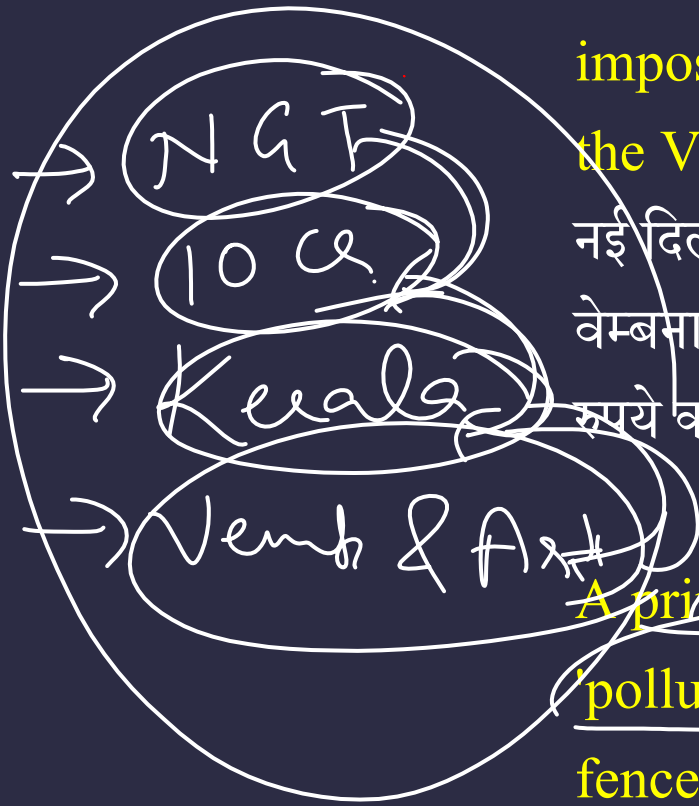 NGT
10 Cr.
Kerala
Vemb & Asht
impos
the V
नई दिल
वेम्बना
रुपये व
A pri
'pollu
fence